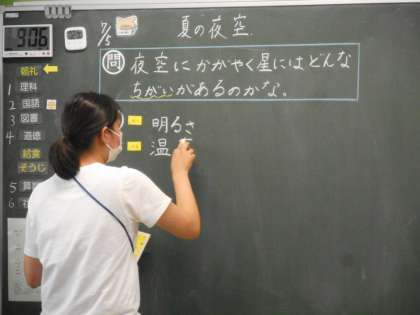 9:06
7/5 夏の夜空
問 夜空にかがやく星にはどんな
ちがいがあるのかな。
明るさ
温
朝礼
1 理科
2 国語
3 図書
4 道徳
給食
そうじ
5 算
6